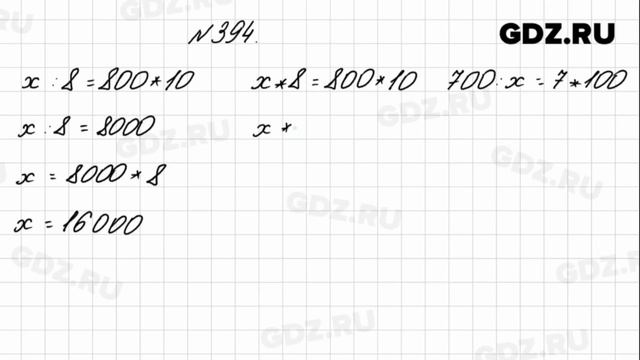 N 394.
GDZ.RU
x : 8 = 800 * 10
x : 8 = 8000
x = 8000 * 8
x = 16000
x * 8 = 800 * 10
x *
700 : x = 7 * 100
GDZ.RU
GDZ.RU
GDZ.RU
GDZ.RU
GDZ.RU
GDZ.RU
GDZ.RU
GDZ.RU